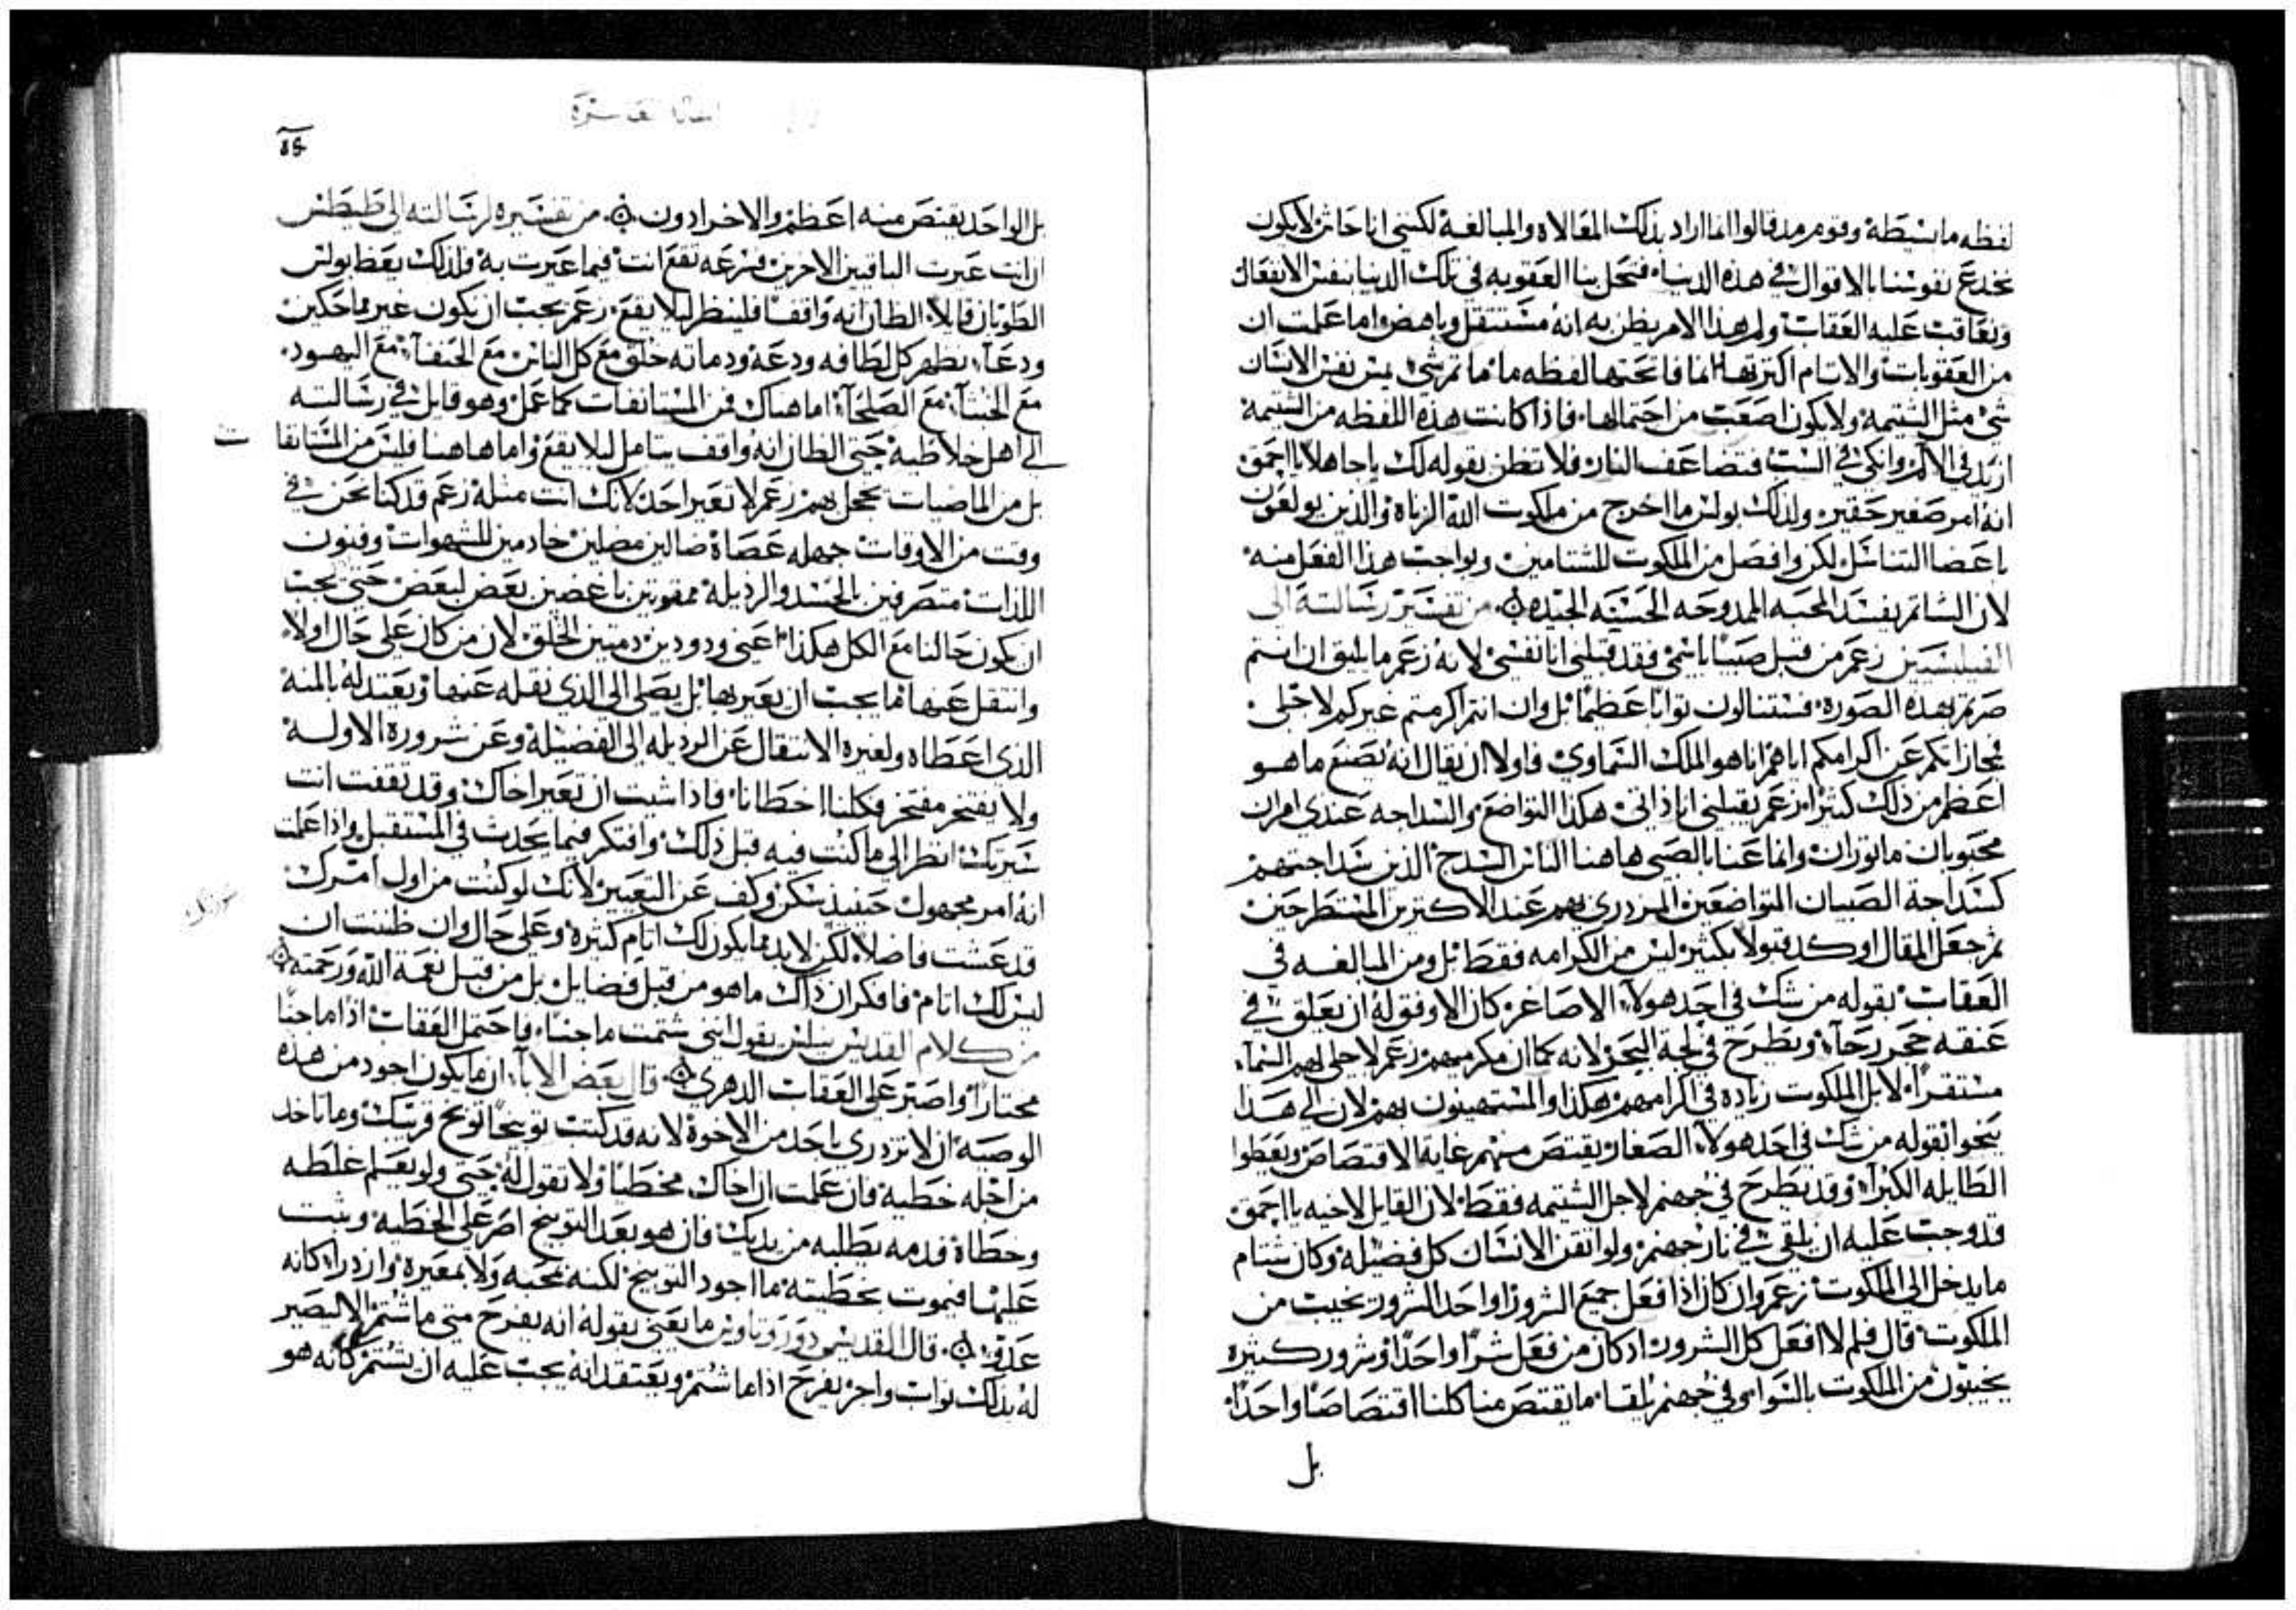 لفظه ما بسيطة وقوم مد قالوا انما اراد بذلك المقالاه والمبالغة لكنني انا خاش لايكون
نخدع نفوسنا بالاقوال في هذه الدنيا فتحل بنا العقوبه في تلك الدنيا بنفس الافعال
ونعاقب عليه العقاب ولم هذا الامر يظن به انه مستثقل وباهض واما علمت ان
من العقوبات والاتام اكثرتها انما فاتحتها لفظه ما ما تم شي يمس نفس الانسان
شي مثل الشتيمة ولا يكون اصعب من احتمالها فاذا كانت هذه اللفظه من الشتيمة
ازيد في الالم وانكى في السب فتضاعف النار فلا تظن بقوله لك ياجاهلا يااحمق
انه امر صغير حقير ولذلك بولس ما اخرج من ملكوت الله الزناه والذين يولعون
باعضا التناسل لكن وافصل من الملكوت للشتامين وبواجب هذا الفعل منه
لان الشاتم يفسد المحبه الممدوحه الحسنه الجيده من تفسير رسالته الى
الفيلبسيين زعم من قبل صبيا باسمي فقد قبلني انا نفسي لانه زعم ما يليق ان انتم
صرتم بهذه الصورة فستنالون توابا عظيما بل وان انتم اكرمتم غيركم لاجلى
مجازاتكم عن اكرامكم اياهم انا هو الملك السماوي فاولا ان يقال انه يصنع ما هو
اعظم من ذلك كثيرا زعم يقبلني انا ذاتي هكذا التواضع والسداجه عندي امران
محبوبان ماتوران وانما عنا بالصبي هاهنا الناس السدج الذين سداجتهم
كسداجة الصبيان المتواضعين المزدرى بهم عند الاكترين المستطرحين
ثم جعل المقال اوكد قبولا بكثير ليس من الكرامه فقط بل ومن المبالغه في
العقاب بقوله من شك في احد هولاء الاصاغر كان الاوفق له ان يعلق في
عنقه حجر رحاء ويطرح في لجة البحر لانه كما ان مكرميهم زعم لاجلى لهم السماء
مستقرا لابل الملكوت زياده في اكرامهم هكذا والمستهينون بهم لان الى هذا
ينحوا بقوله من شك في احد هولاء الصغار يقتص منهم غاية الاقتصاص ويعطوا
الطايله الكبراء وقد يطرح في جهنم لاجل الشتيمه فقط لان القايل لاخيه يااحمق
قد وجب عليه ان يلقى في نار جهنم ولو اتقن الانسان كل فضيلة وكان شتام
مايدخل الى الملكوت زعم وان كان اذا فعل جميع الشرور او احد الشرور يخيب من
الملكوت قال فلم لا افعل كل الشرور اد كان من فعل شرا واحدا وشرور كثيره
يخيبون من الملكوت بالسواى وفي جهنم يلقا ما يقتص منا كلنا اقتصاصا واحدا
بل
بل الواحد يقتص منه اعظم والاخر ادون من تفسيره لرسالته الى طيطس
ان انت عيرت الباقين الاخرين فسرعه تقع انت فيما عيرت به فلذلك يعظ بولس
الطوبان قايلا الظان انه واقفا فلينظر ليلا يقع زعم يجب ان يكون غير مماحكين
ودعاء نظهر كل لطافه ودعة ودماته خلق مع كل الناس مع الحنفاء مع اليهود
مع الخبثاء مع الصلحاء اما هناك فمن المستانفات كما عمل وهو قايل في رسالته
الى اهل خلاطية حتى الظان انه واقف يتامل ليلا يقع واما هاهنا فليس من المستانفات
بل من الماضيات نخجل بهم زعم لا تعير احد لانك انت مثله زعم قد كنا نحن في
وقت من الاوقات جهله عصاة ضالين مضلين خادمين للشهوات وفنون
اللذات متصرفين بالحسد والرديلة ممقوتين باغضين بعض لبعض حتى يجب
ان يكون حالنا مع الكل هكذا اعني ودودين دمتين الخلق لان من كان على حال اولا
وانتقل عنها فما يجب ان يعير بها بل يصلي الى الذي نقله عنها ويعتد له بالمنة
الذي اعطاه ولغيره الانتقال عن الرديله الى الفضيلة وعن شروره الاوله
ولا يفتخر مفتخر فكلنا اخطانا فاذا شيت ان تعير اخاك وقد تقفت انت
سيرتك انظر الى ما كنت فيه قبل ذلك وافتكر فيما يحدث في المستقبل واذا علمت
انه امر مجهول حينيذ تسكن وكف عن التعيير لانك لو كنت من اول امرك
قد عشت فاضلا لكن لابد مما يكون لك اتام كثيرة وعلى حال وان ظننت ان
ليس لك اتام فافكر ان ذاك ماهو من قبل فضايل بل من قبل نعمة الله ورحمته
من كلام القديس يقول انني شتمت ماجنا فاحتمل العقاب اذا ماجنا
محتارا واصتر على العقاب الدهري قال بعض الاباء ان ما يكون اجود من هذه
الوصية ان لا تزدري باحد من الاخوة لانه قد كتب توبيخا توبخ قريبك وما تاخد
من اجله خطية فان علمت ان اخاك مخطيا ولا تقول له حتى ولو يعلم غلطه
وخطاة فدمه يطلبه من يديك فان هو بعد التوبيخ اصر على الخطية ويثبت
عليها فيموت بخطيته ما اجود التوبيخ لكنه بمحبه ولا بمعيرة وازدراء كانه
عدو قال القديس دوروتاوس ما يعني بقولة انه يفرح متى ماشتم الا ليصير
له بذلك تواب واجر يفرح اذا ما شتم ويعتقد انه يجب عليه ان يشتم كانه هو